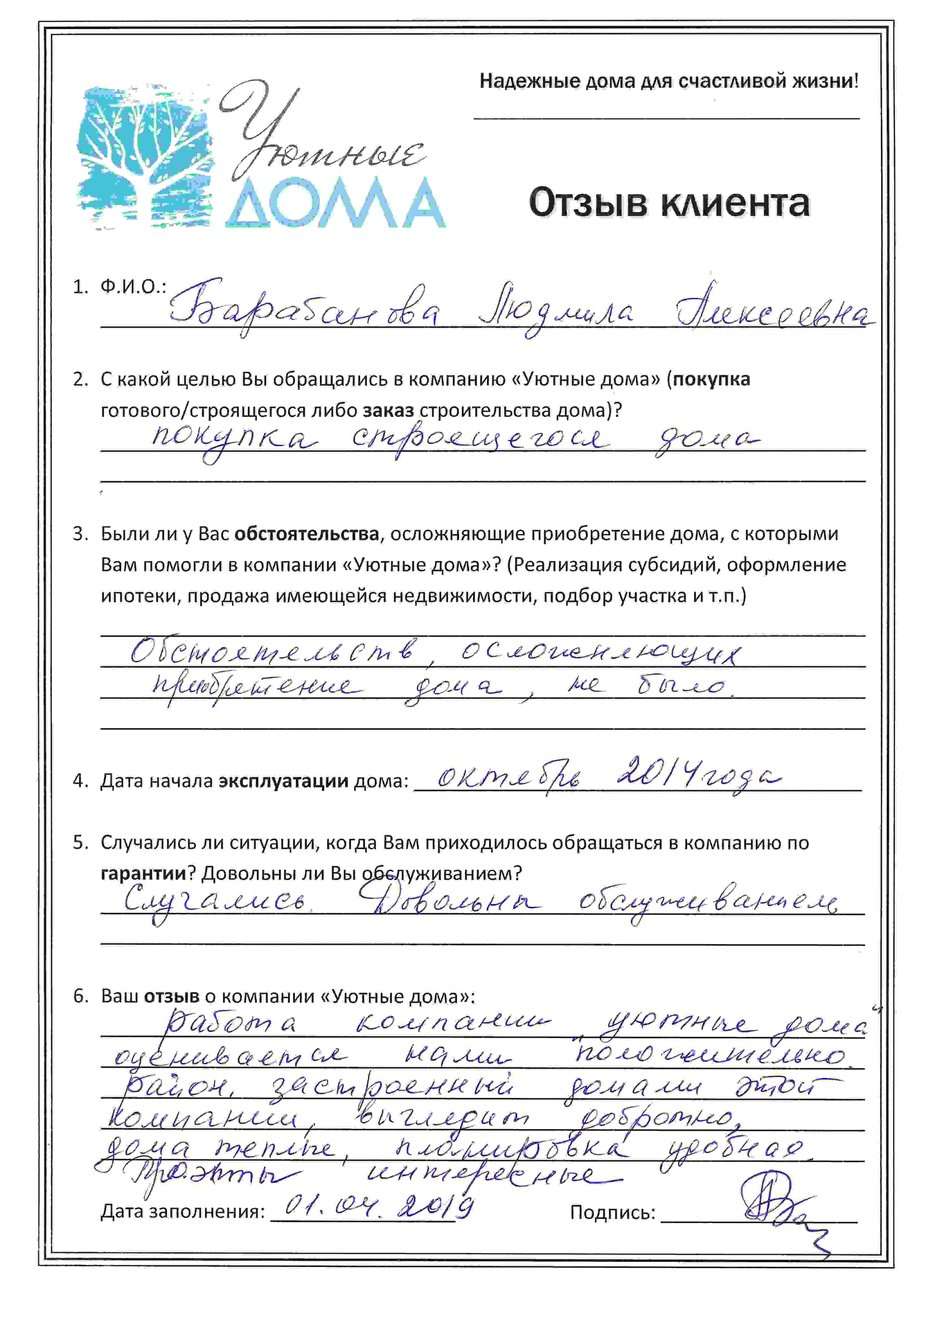 Надежные дома для счастливой жизни!
Уютные
ДОМА
Отзыв клиента
1. Ф.И.О.: Барабанова Людмила Алексеевна
2. С какой целью Вы обращались в компанию «Уютные дома» (покупка
готового/строящегося либо заказ строительства дома)?
покупка строящегося дома
3. Были ли у Вас обстоятельства, осложняющие приобретение дома, с которыми
Вам помогли в компании «Уютные дома»? (Реализация субсидий, оформление
ипотеки, продажа имеющейся недвижимости, подбор участка и т.п.)
Обстоятельств, осложняющих
приобретение дома, не было.
4. Дата начала эксплуатации дома: октябрь 2014 года
5. Случались ли ситуации, когда Вам приходилось обращаться в компанию по
гарантии? Довольны ли Вы обслуживанием?
Случались. Довольны обслуживанием
6. Ваш отзыв о компании «Уютные дома»:
Работа компании "уютные дома"
оценивается нами положительно.
Район, застроенный домами этой
компании, выглядит добротно,
дома теплые, планировка удобная.
Проэкты интересные
Дата заполнения: 01.04.2019 Подпись: